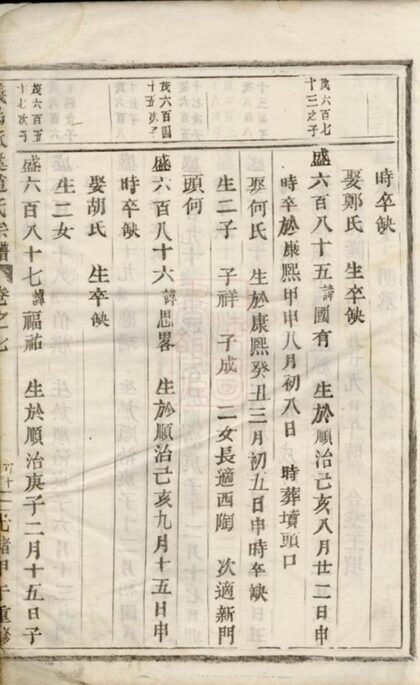 時卒缺
娶鄭氏 生卒缺
茂六百七
十三之子
盛六百八十五諱國有 生於順治己亥八月廿二日申
時卒於康熙甲申八月初八日 時葬墳頭口
娶何氏 生於康熙癸丑三月初五日申時卒缺
生二子 子祥 子成 二女長適西陶 次適新門
頭何
茂六百四
十五次子
盛六百八十六諱思畧 生於順治己亥九月十五日申
時卒缺
娶胡氏 生卒缺
生二女
茂六百五
十七次子
盛六百八十七諱福祐 生於順治庚子二月十五日子
氏宗譜 卷之七
光緒甲午重修